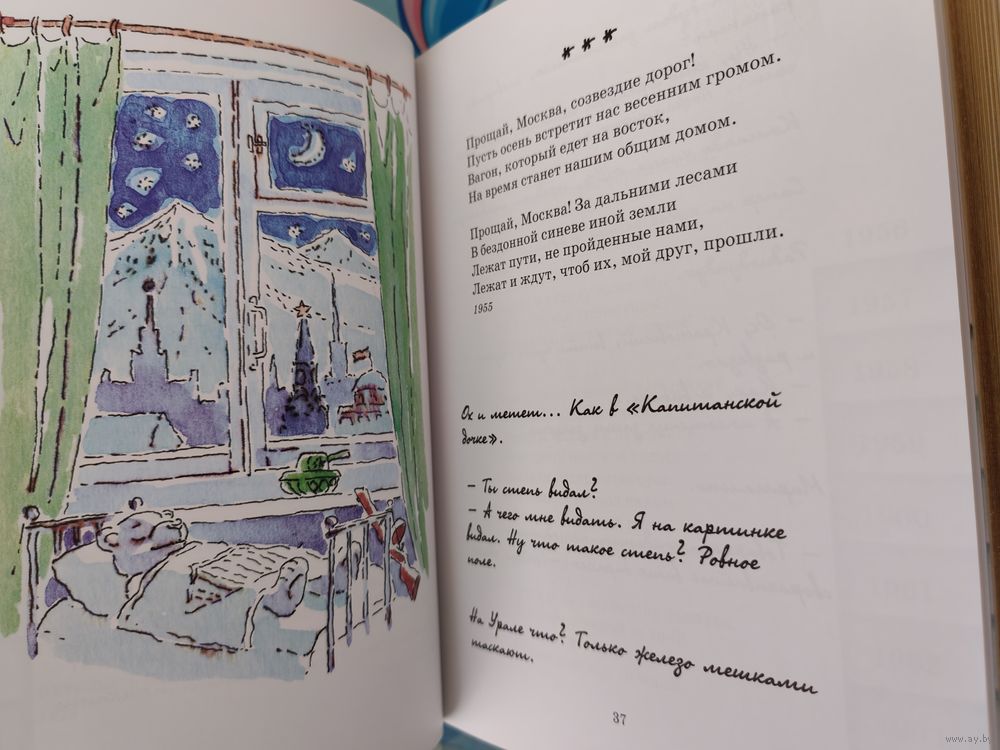 * * *
Прощай, Москва, созвездие дорог!
Пусть осень встретит нас весенним громом.
Вагон, который едет на восток,
На время станет нашим общим домом.
Прощай, Москва! За дальними лесами
В бездонной синеве иной земли
Лежат пути, не пройденные нами,
Лежат и ждут, чтоб их, мой друг, прошли.
1955
Ох и метет... Как в «Капитанской
дочке».
– Ты степь видал?
– А чего мне видать. Я на картинке
видал. Ну что такое степь? Ровное
поле.
На Урале что? Только железо мешками
таскают.
37
www.ay.by